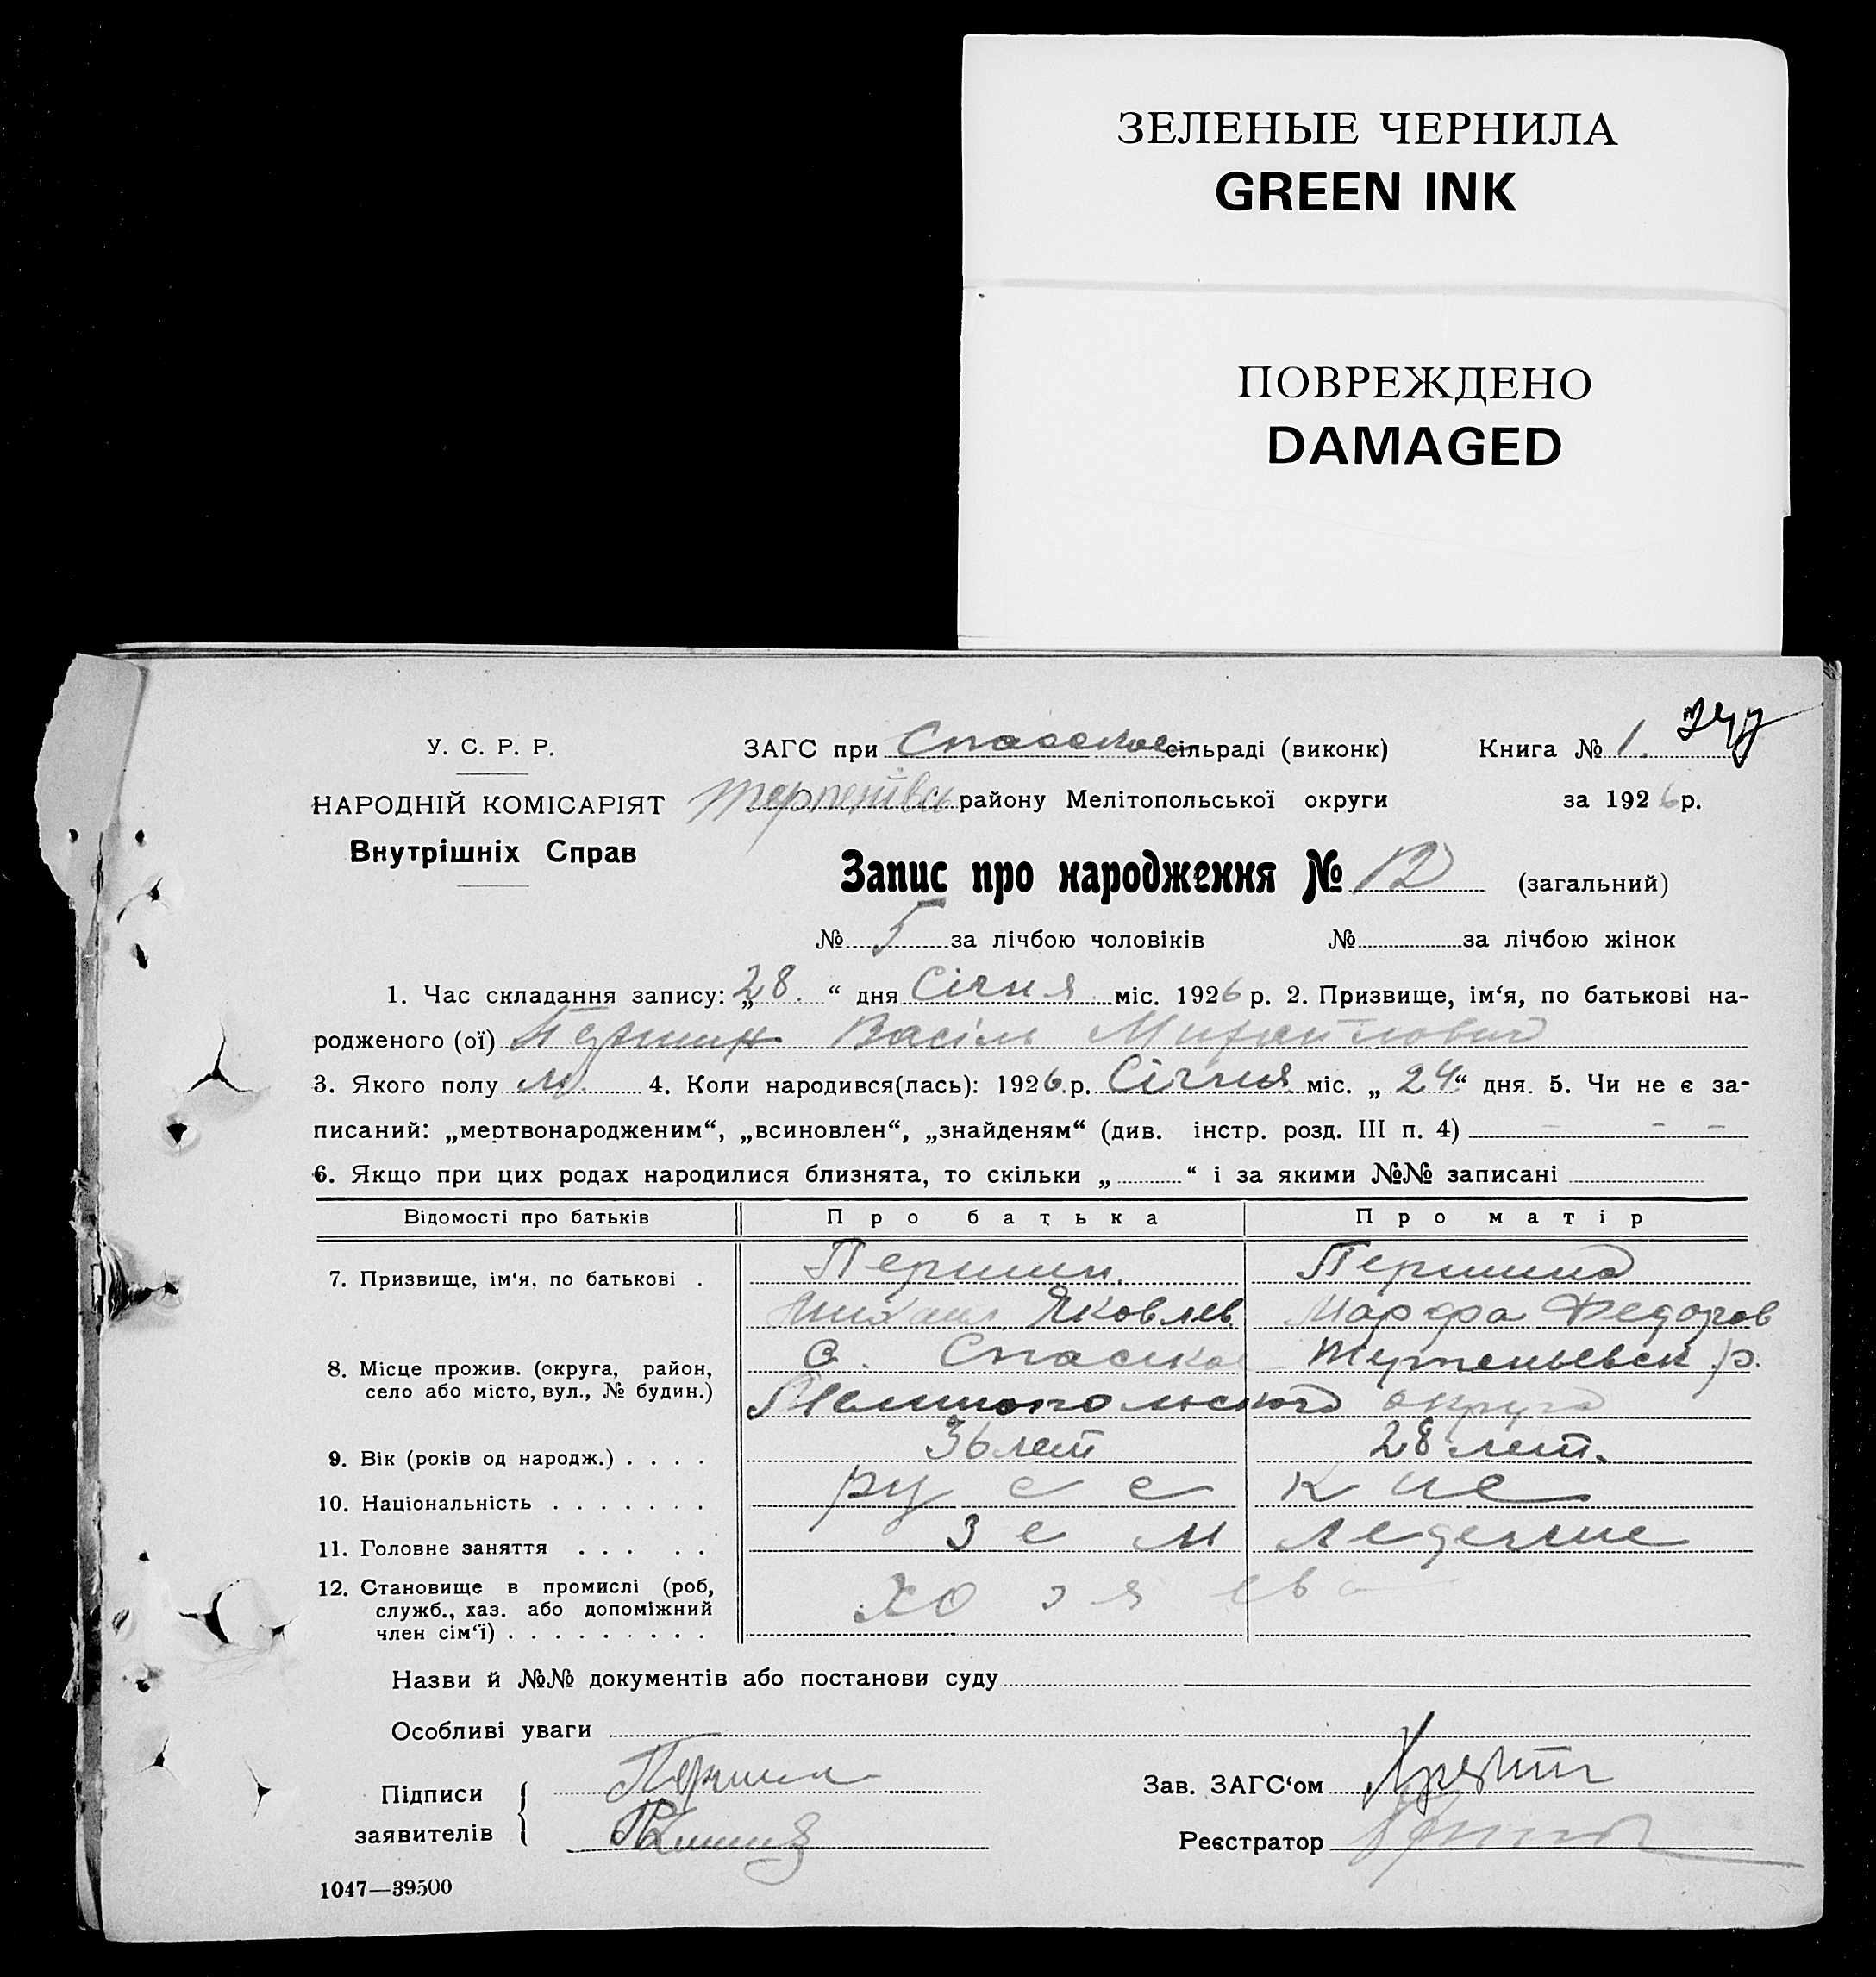 ЗЕЛЕНЫЕ ЧЕРНИЛА
GREEN INK
ПОВРЕЖДЕНО
DAMAGED
У. С. Р. Р.
НАРОДНІЙ КОМІСАРІЯТ
Внутрішніх Справ
ЗАГС при Спасское сільраді (виконк) Книга № 1.
району Мелітопольської округи за 1926 р.
Запис про народження № 12 (загальний)
№ 5 за лічбою чоловіків № за лічбою жінок
1. Час складання запису: „28.“ дня Січня міс. 1926 р. 2. Призвище, ім‘я, по батькові на-
родженого (ої) Першин Васіль Михайлович
3. Якого полу м 4. Коли народився(лась): 1926.р. Січня міс. „24“ дня. 5. Чи не є за-
писаний: „мертвонародженим“, „всиновлен“, „знайденям“ (див. інстр. розд. III п. 4) – – –
6. Якщо при цих родах народилися близнята, то скільки „ “ і за якими №№ записані
Відомості про батьків Про батька Про матір
7. Призвище, ім‘я, по батькові . Першин. Першина
Михаил Яковлев Марфа Федоров
8. Місце прожив. (округа, район, село або місто, вул., № будин.) с. Спаское р.
Мелитопольского округа
9. Вік (років од народж.) . . . . 36 лет 28 лет.
10. Національність . . . . . . . русские
11. Головне заняття . . . . . земледелие
12. Становище в промислі (роб, служб., хаз. або допоміжний член сім‘ї) . . . . . . . . . хозяева
Назви й №№ документів або постанови суду
Особливі уваги
Підписи заявителів Першин
Зав. ЗАГС‘ом
Реєстратор
1047—39500